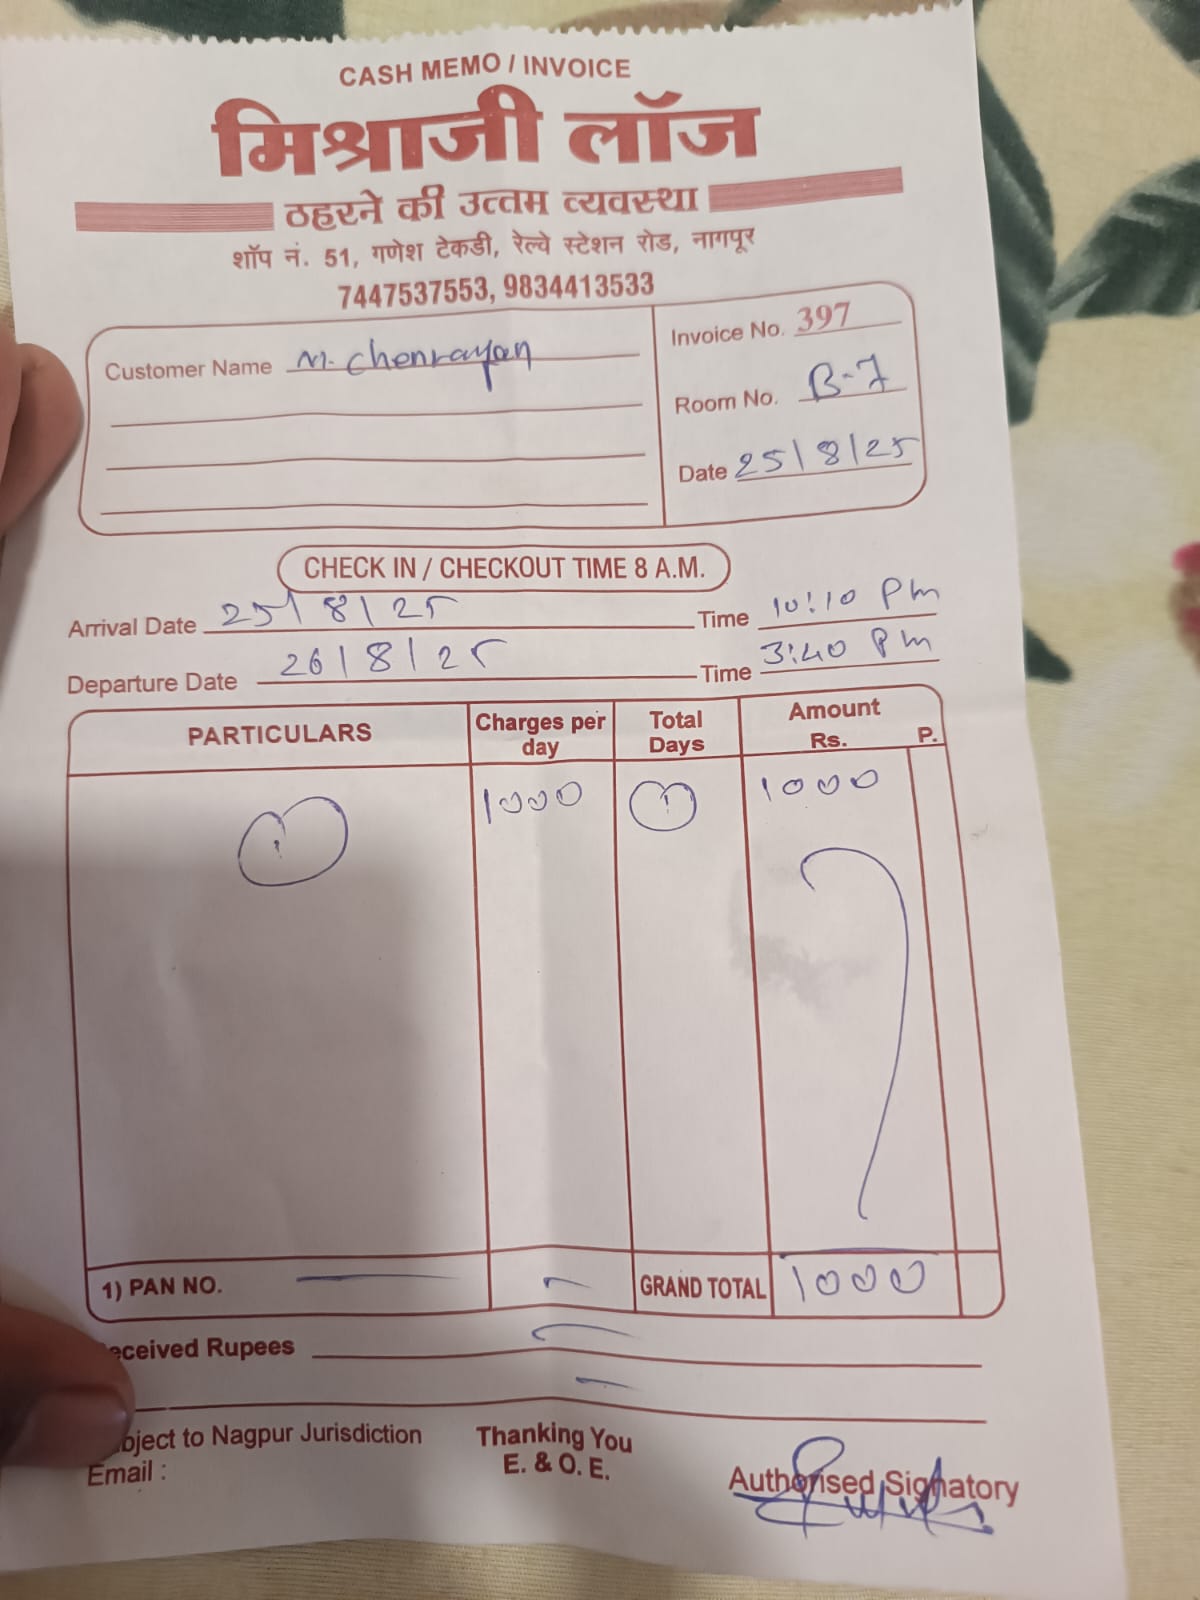 CASH MEMO / INVOICE
मिश्राजी लॉज
ठहरने की उत्तम व्यवस्था
शॉप नं. 51, गणेश टेकडी, रेल्वे स्टेशन रोड, नागपूर
7447537553, 9834413533
Customer Name M. Chenrayan
Invoice No. 397
Room No. B-7
Date 25/8/25
CHECK IN / CHECKOUT TIME 8 A.M.
Arrival Date 25/8/25 Time 10:10 PM
Departure Date 26/8/25 Time 3:40 PM
PARTICULARS Charges per day Total Days Amount Rs. P.
1 1000 1 1000
1) PAN NO. GRAND TOTAL 1000
eceived Rupees
bject to Nagpur Jurisdiction Thanking You
Email : E. & O. E.
Authorised Signatory